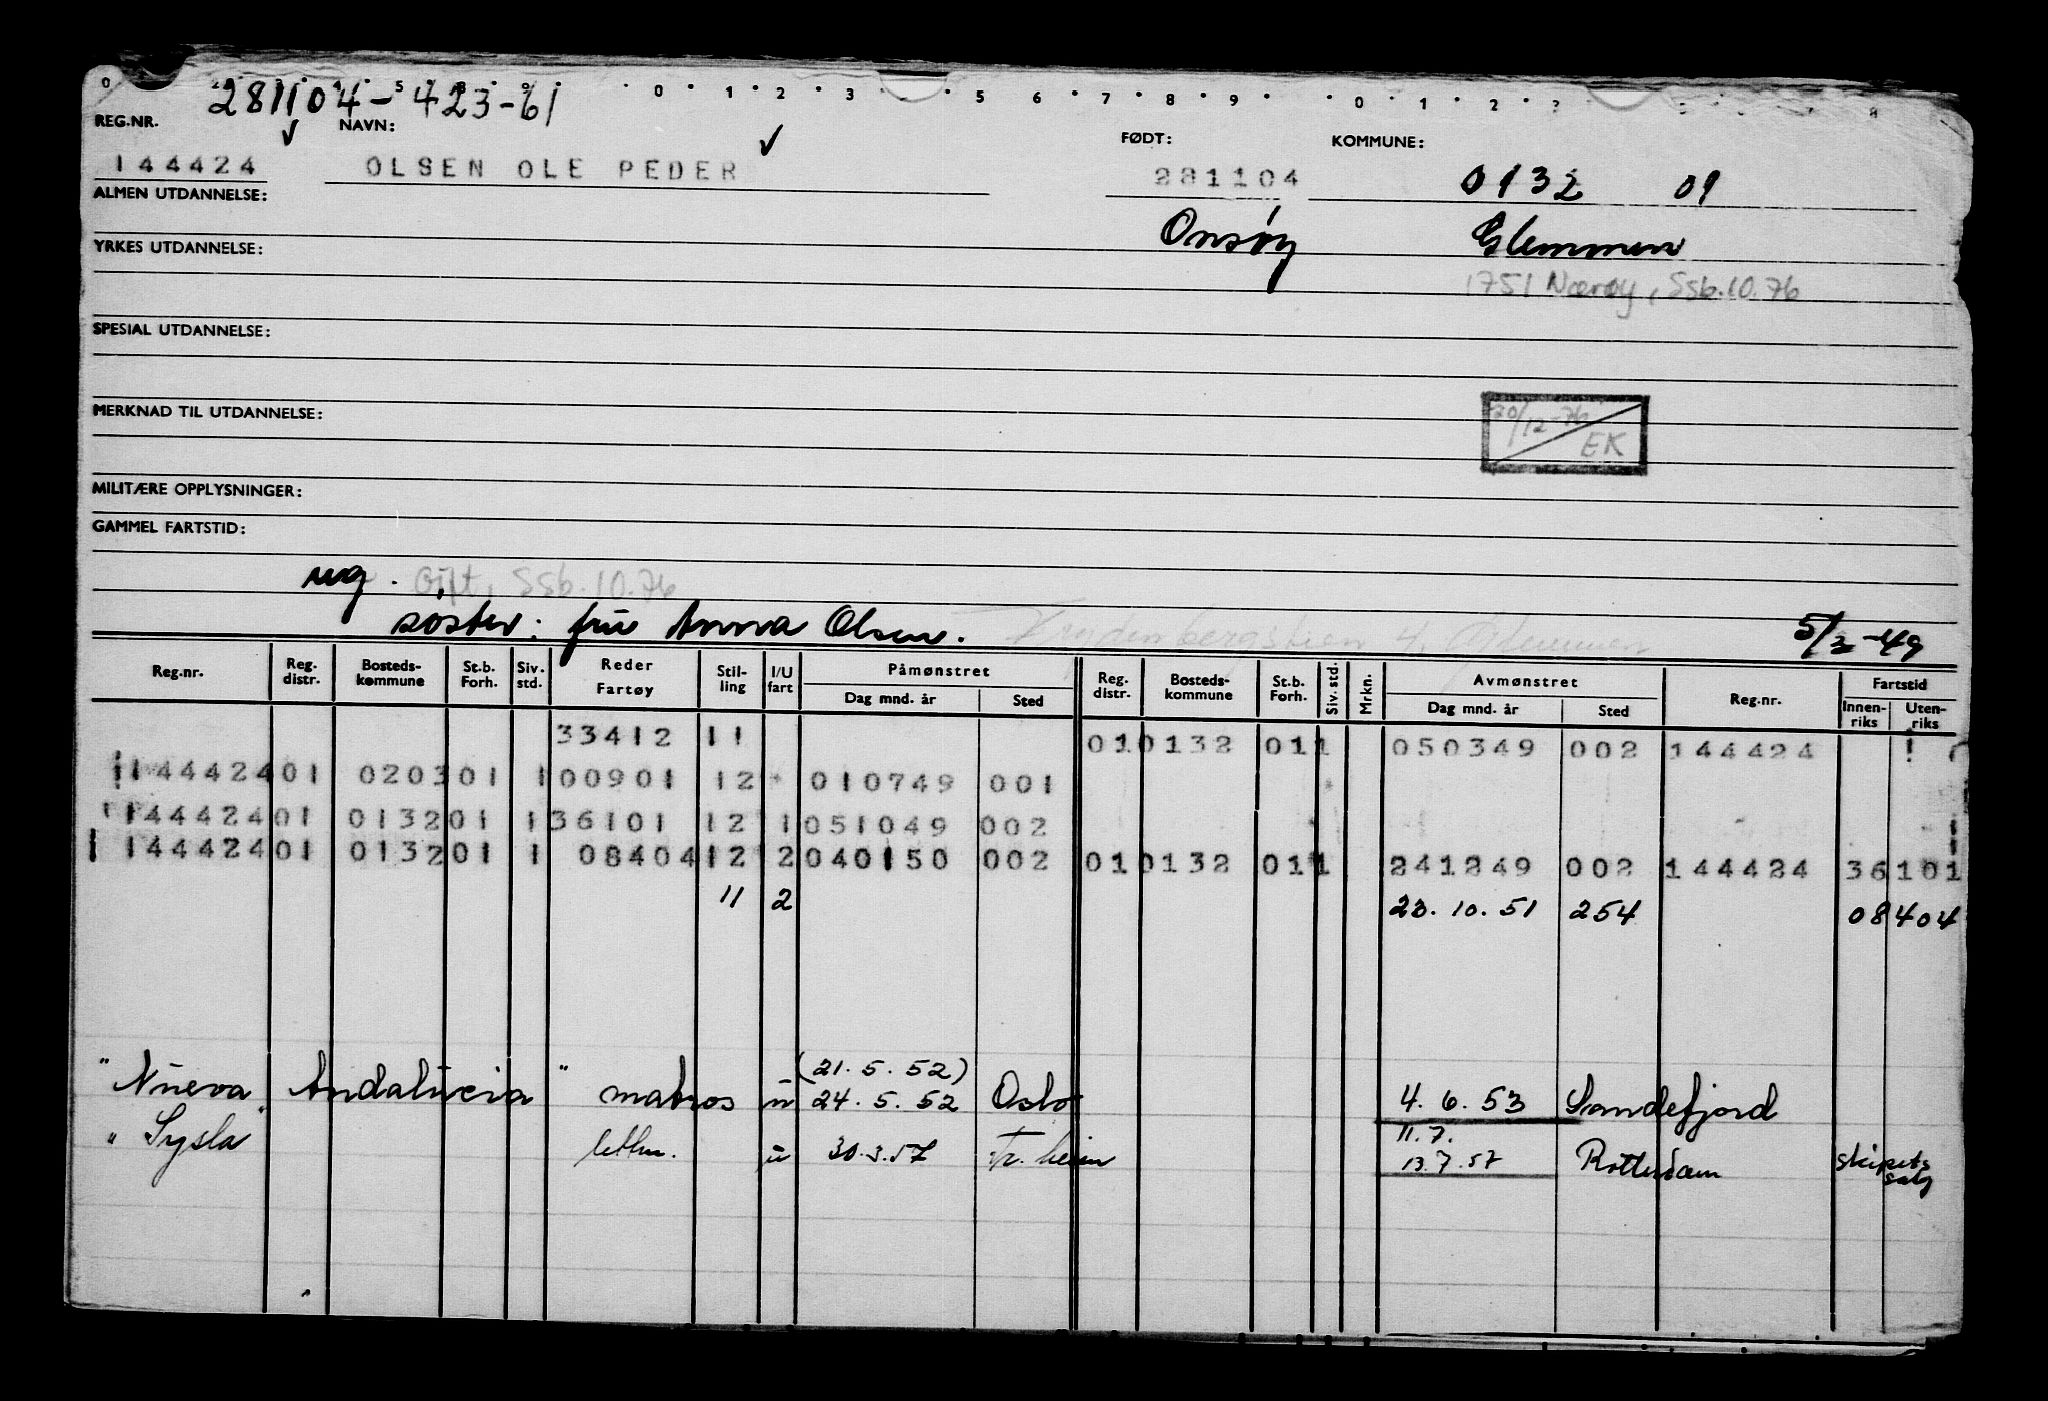 281104-423-61
REG.NR. NAVN: FØDT: KOMMUNE:
144424 OLSEN OLE PEDER 281104 0132 01
ALMEN UTDANNELSE: Onsøy Glemmen
YRKES UTDANNELSE:
1751 Nærøy, Ssb.10.76
SPESIAL UTDANNELSE:
MERKNAD TIL UTDANNELSE:
20/12-76 EK
MILITÆRE OPPLYSNINGER:
GAMMEL FARTSTID:
ug. Gift, Ssb.10.76
søster: fru Anna Olsen. Glemmen 5/3-49
Reg.nr. Reg. distr. Bosteds-kommune St.b. Forh. Siv. std. Reder Fartøy Stil-ling I/U fart Påmønstret Dag mnd. år Sted Reg. distr. Bosteds-kommune St.b. Forh. Siv. std. Mrkn. Avmønstret Dag mnd. år Sted Reg.nr. Fartstid Innen-riks Uten-riks
33412 11 01 0132 01 1 050349 002 144424
144424 01 0203 01 1 00901 12 010749 001
144424 01 0132 01 1 36101 12 1 051049 002
144424 01 0132 01 1 08404 12 2 040150 002 01 0132 01 1 241249 002 144424 36101
11 2 23.10.51 254 08404
(21.5.52)
"Nueva Andalucia" matros u 24.5.52 Oslo 4.6.53 Sandefjord
11.7.
"Sysla" lettm. u 30.3.57 Tr.heim 13.7.57 Rotterdam skipets salg